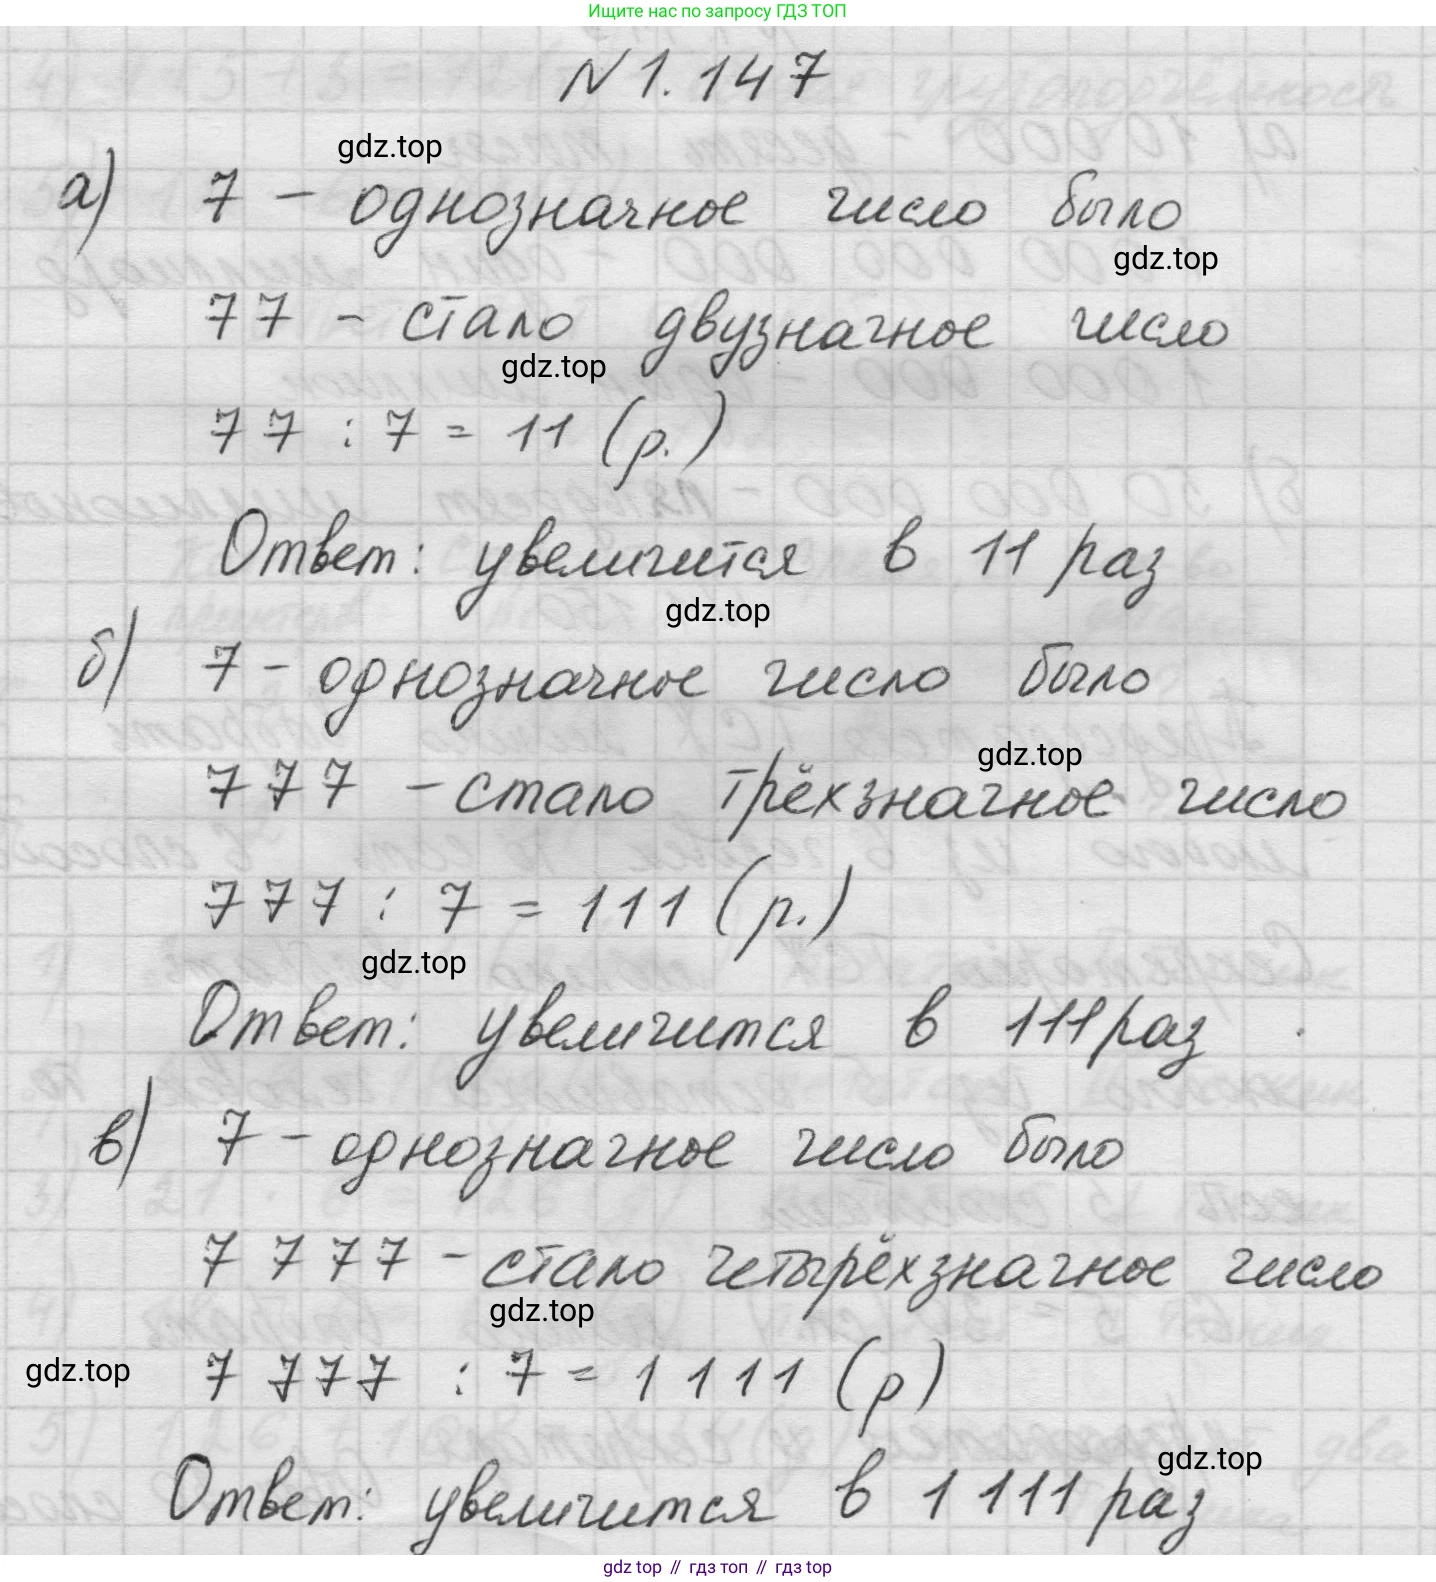 Ищите нас по запросу ГДЗ ТОП
N 1.147
gdz.top
а) 7 - однозначное число было
gdz.top
77 - стало двузначное число
gdz.top
77 : 7 = 11 (р.)
Ответ: увеличится в 11 раз
gdz.top
б) 7 - однозначное число было
gdz.top
777 - стало трёхзначное число
777 : 7 = 111 (р.)
gdz.top
Ответ: увеличится в 111 раз
в) 7 - однозначное число было
7 777 - стало четырёхзначное число
gdz.top
gdz.top
7 777 : 7 = 1 111 (р)
gdz.top
Ответ: увеличится в 1 111 раз
gdz top // гдз топ // gdz top